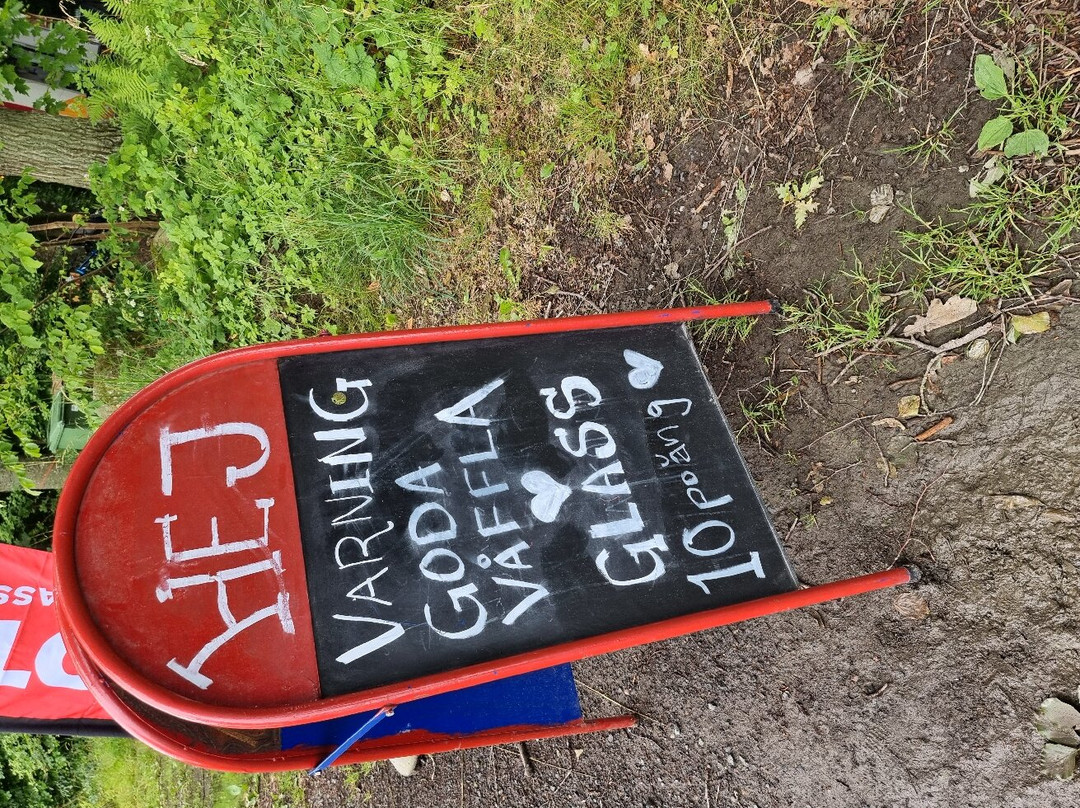 HEJ
VARNING
GODA
VÅFFLA
GLASS
10 poäng